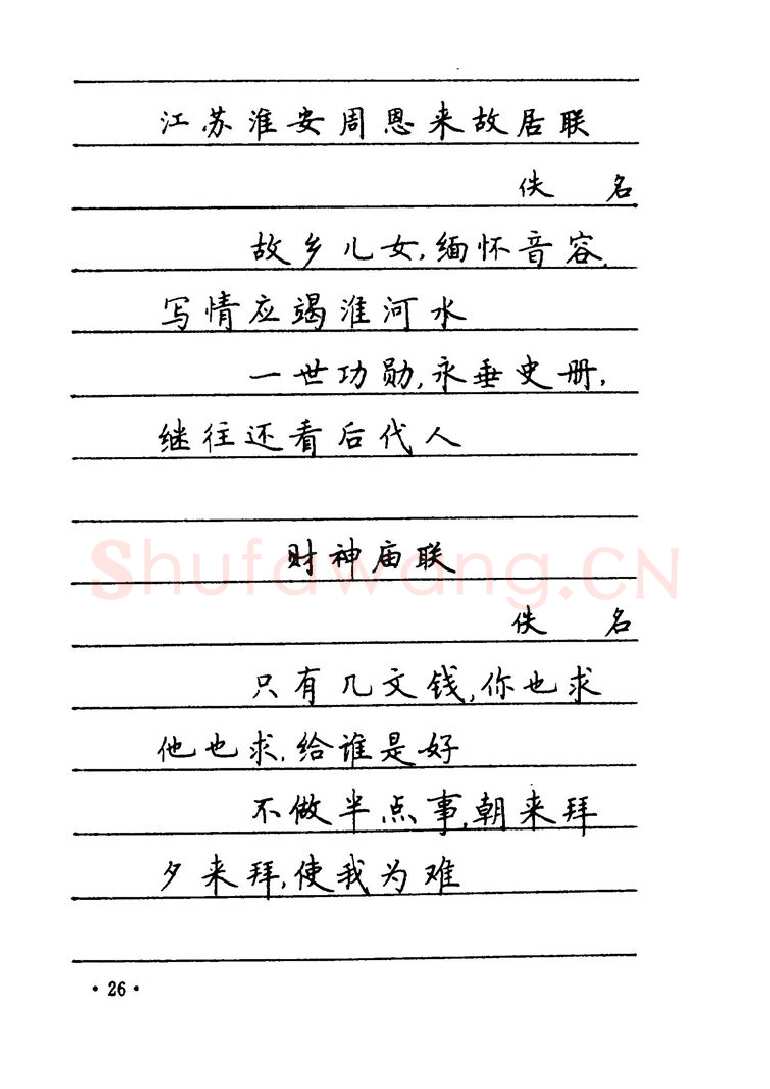 江苏淮安周恩来故居联
佚 名
故乡儿女,缅怀音容,
写情应竭淮河水
一世功勋,永垂史册,
继往还看后代人
财神庙联
Shufawang.CN
佚 名
只有几文钱,你也求
他也求,给谁是好
不做半点事,朝来拜
夕来拜,使我为难
·26·